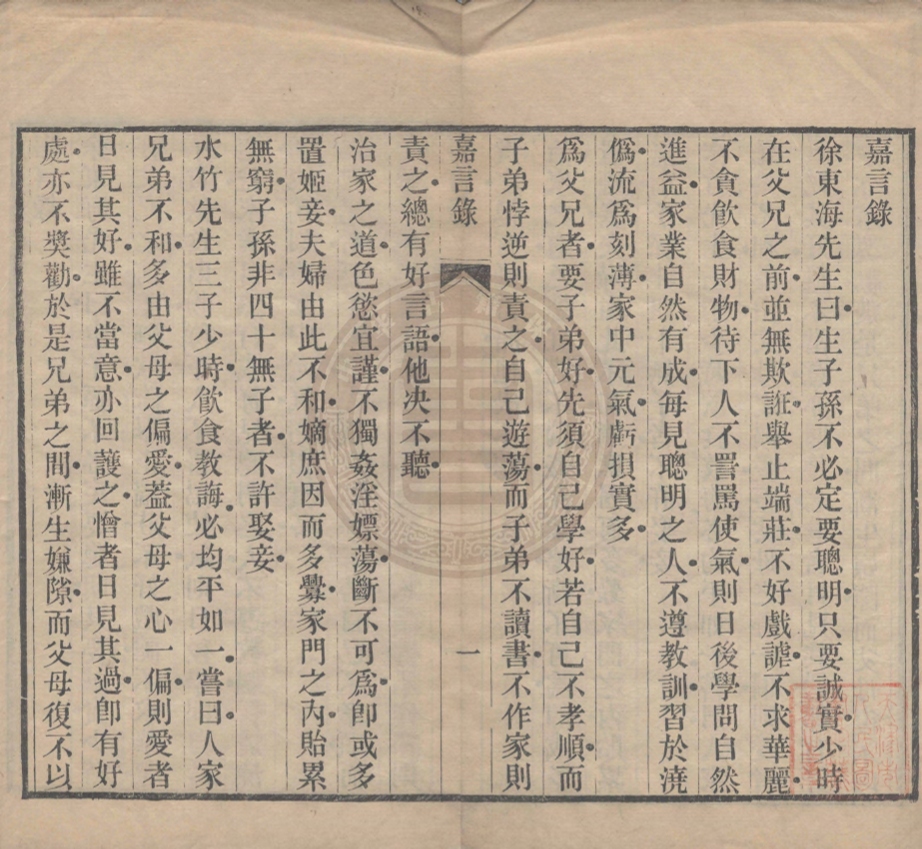 嘉言錄
徐東海先生曰生子孫不必定要聰明只要誠實少時
在父兄之前並無欺誑舉止端莊不好戲謔不求華麗
不貪飮食財物待下人不詈罵使氣則日後學問自然
進益家業自然有成每見聰明之人不遵教訓習於澆
僞流爲刻薄家中元氣虧損實多
爲父兄者要子弟好先須自己學好若自己不孝順而
子弟悖逆則責之自己遊蕩而子弟不讀書不作家則
嘉言錄
一
責之總有好言語他决不聽
治家之道色慾宜謹不獨姦淫嫖蕩斷不可爲卽或多
置姬妾夫婦由此不和嫡庶因而多釁家門之內貽累
無窮子孫非四十無子者不許娶妾
水竹先生三子少時飮食教誨必均平如一嘗曰人家
兄弟不和多由父母之偏愛蓋父母之心一偏則愛者
日見其好雖不當意亦回護之憎者日見其過卽有好
處亦不獎勸於是兄弟之間漸生嫌隙而父母復不以